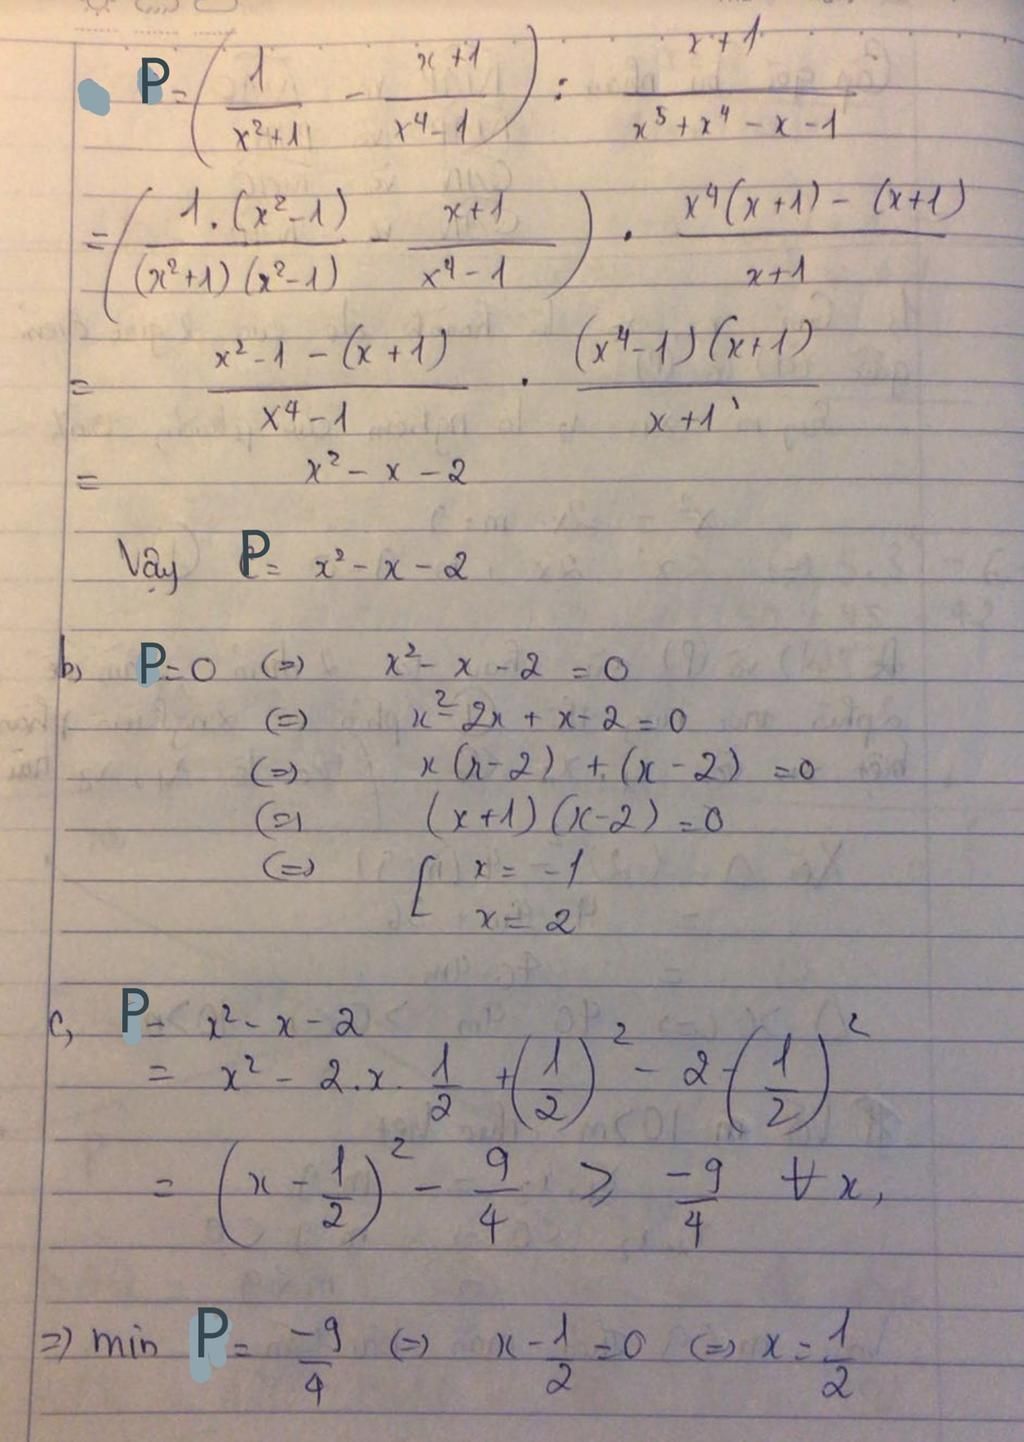 P = ( 1/(x²+1) - (x+1)/(x⁴-1) ) : (x+1)/(x⁵+x⁴-x-1)
= ( 1.(x²-1)/((x²+1)(x²-1)) - (x+1)/(x⁴-1) ) . (x⁴(x+1)-(x+1))/(x+1)
= (x²-1-(x+1))/(x⁴-1) . ((x⁴-1)(x+1))/(x+1)
= x²-x-2
Vậy P = x²-x-2
b, P=0 (=) x²-x-2=0
(=) x²-2x+x-2=0
(=) x(x-2)+(x-2)=0
(=) (x+1)(x-2)=0
(=) [ x=-1
x=2
c, P = x²-x-2
= x²-2.x.1/2+(1/2)²-2-(1/2)²
= (x-1/2)²-9/4 ⩾ -9/4 ∀x,
=) min P = -9/4 (=) x-1/2=0 (=) x=1/2